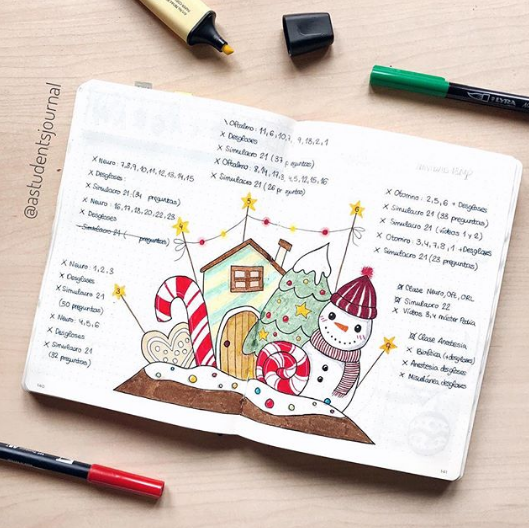 @astudentsjournal
\ Oftalmo: 11, 6, 10, 7, 9, 18, 2, 1
x Desgloses
x Simulacro 21 (37 preguntas)
x Oftalmo: 8, 14, 17, 3, 4, 5, 12, 15, 16
x Simulacro 21 (26 preguntas)
x Neuro: 7, 8, 9, 10, 11, 12, 13, 14, 15
x Desgloses
x Simulacro 21 (34 preguntas)
x Neuro: 16, 17, 18, 20, 22, 23
x Desgloses
x Simulacro 21 ( preguntas)
4
5
6
x Otorrino: 2, 5, 6 + Desgloses
x Simulacro 21 (33 preguntas)
x Simulacro 21 (vídeos 1 y 2)
x Otorrino: 3, 4, 7, 8, 1 + Desgloses
x Simulacro 21 (23 preguntas)
x Neuro 1, 2, 3
x Desgloses
x Simulacro 21
(30 preguntas)
x Neuro 4, 5, 6
x Desgloses
x Simulacro 21
(32 preguntas)
3
x Clase Neuro, OFT, ORL
x Simulacro 22
x Vídeos
7
x Clase Anestesia
x Bioética (+ desgloses)
x Anestesia desgloses
x Miscelánea desgloses